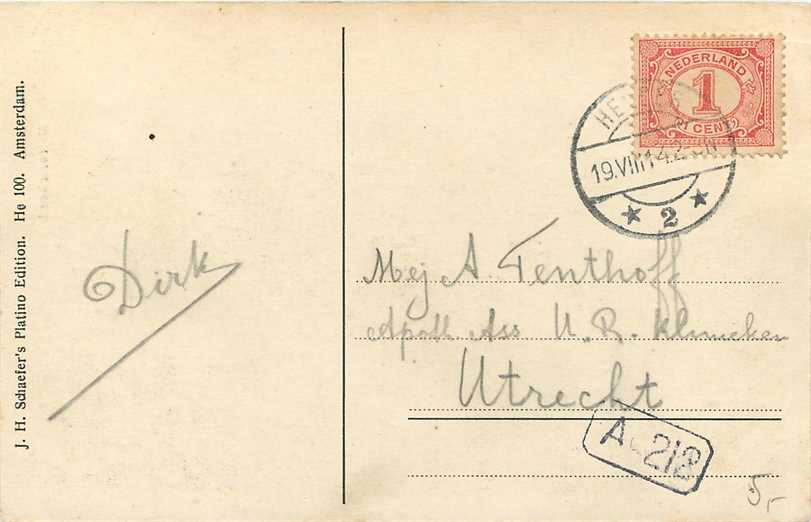 J. H. Schaefer's Platino Edition. He 100. Amsterdam.
Dirk
NEDERLAND
1
CENT
19.VIII.14.2-
2
Mej A. Tenthoff
Apoth Ass U. R. Klinieken
Utrecht
A 212
5,-